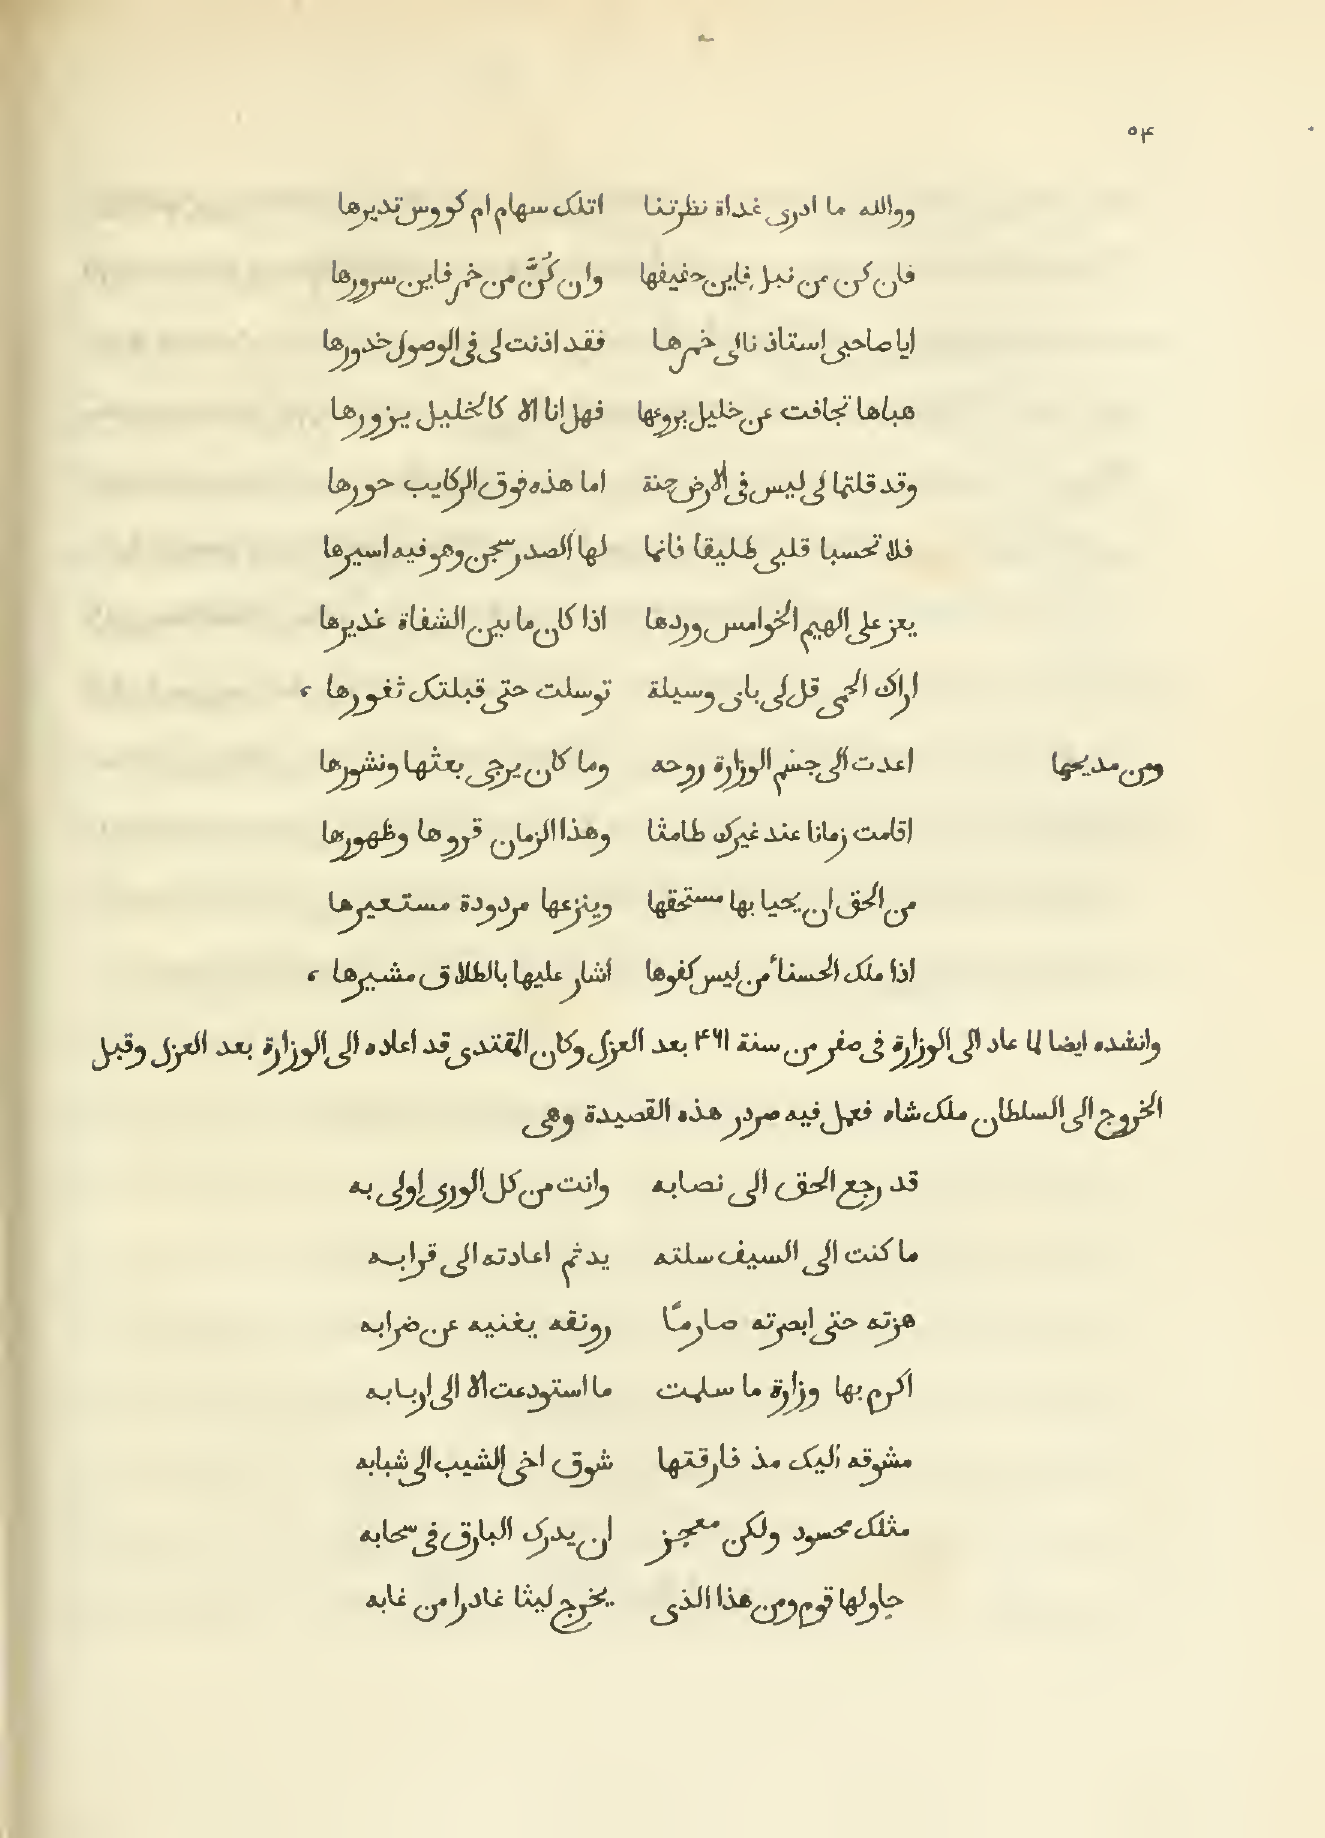 ٥۴
ووالله ما ادرى غداة نظرتنا اتلك سهام ام كووس تديرها
فان كن من نبل فاين حفيفها وان كُنَّ من خمر فاين سرورها
ايا صاحبى استاذنا لى خمرها فقد اذنت لى فى الوصول خدورها
هباها تجافت عن خليل يروعها فهل انا الا كالخليل يزورها
وقد قلتما لى ليس فى الارض جنة اما هذه فوق الركايب حورها
فلا تحسبا قلبى طليقا فانما لها الصدر سجن وهو فيه اسيرها
يعز على الهيم الخوامس وردها اذا كان ما بين الشفاة غديرها
اراك الحمى قل لى باى وسيلة توسلت حتى قبلتك ثغورها ،
ومن مديحها اعدت الى جسم الوزارة روحه وما كان يرجى بعثها ونشورها
اقامت زمانا عند غيرك طامثا وهذا الزمان قروها وظهورها
من الحق ان يحيا بها مستحقها وينزعها مردودة مستعيرها
اذا ملك الحسناء من ليس كفوها اشار عليها بالطلاق مشيرها ،
وانشده ايضا لما عاد الى الوزارة فى صفر من سنة ۴۶۱ بعد العزل وكان المقتدى قد اعاده الى الوزارة بعد العزل وقبل
الخروج الى السلطان ملك شاه فعمل فيه صردر هذه القصيدة وهى
قد رجع الحق الى نصابه وانت من كل الورى اولى به
ما كنت الى السيف سلته يد ثم اعادته الى قرابه
هزته حتى ابصرته صارمًا رونقه يغنيه عن ضرابه
اكرم بها وزارة ما سلمت ما استودعت الا الى اربابه
مشوقه اليك مذ فارقتها شوق اخى الشيب الى شبابه
مثلك محسود ولكن معجز ان يدرك البارق فى سحابه
حاولها قوم ومن هذا الذى يخرج ليثا غادرا من غابه